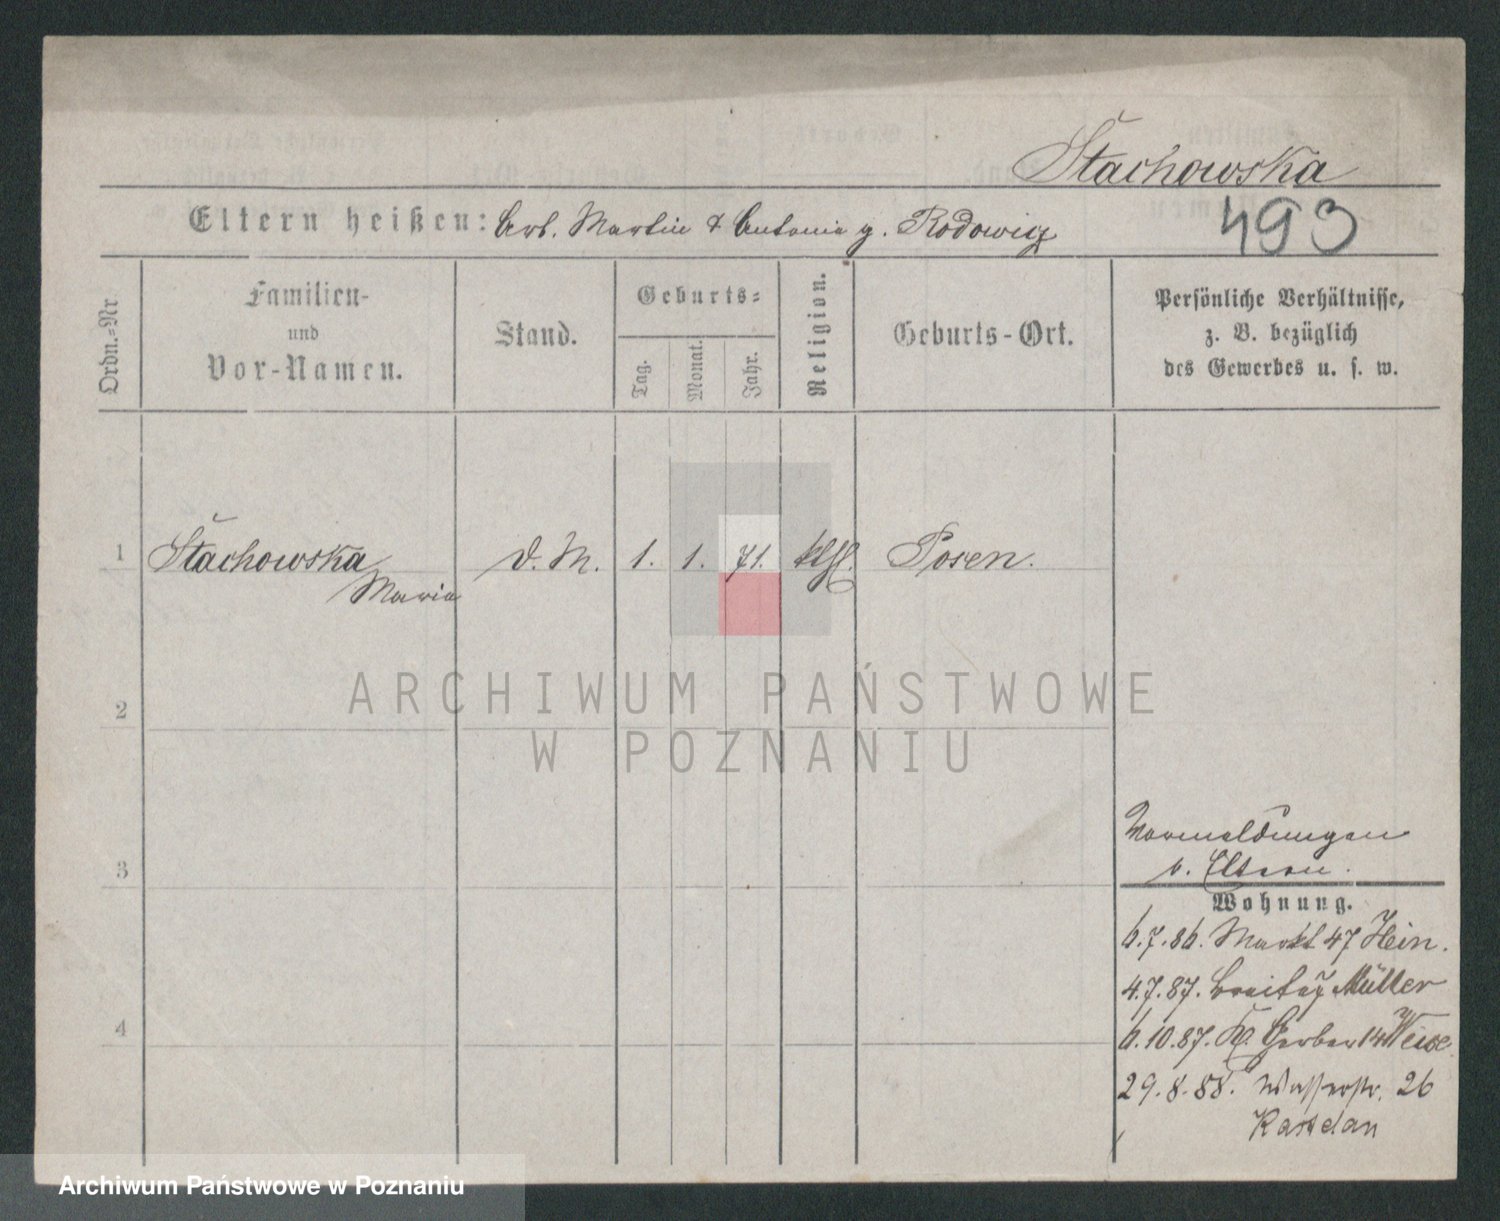 Stachowska
Eltern heißen: Arb. Martin & Antonie g. Rodowicz
493
Ordn.=Nr.
Familien-
und
Vor-Namen.
Stand.
Geburts=
Tag.
Monat.
Jahr.
Religion.
Geburts-Ort.
Persönliche Verhältnisse,
z. B. bezüglich
des Gewerbes u. s. w.
1 Stachowska d. M. 1. 1. 71. kth. Posen.
Maria
2
3
4
Vormeldungen
b. Eltern.
Wohnung.
6.7.86. Markt 47 Hein.
4.7.87. Breite Müller
6.10.87. Kl. Gerber 14 Weise
29.8.88. Wasserstr. 26
ARCHIWUM PAŃSTWOWE
W POZNANIU
Archiwum Państwowe w Poznaniu